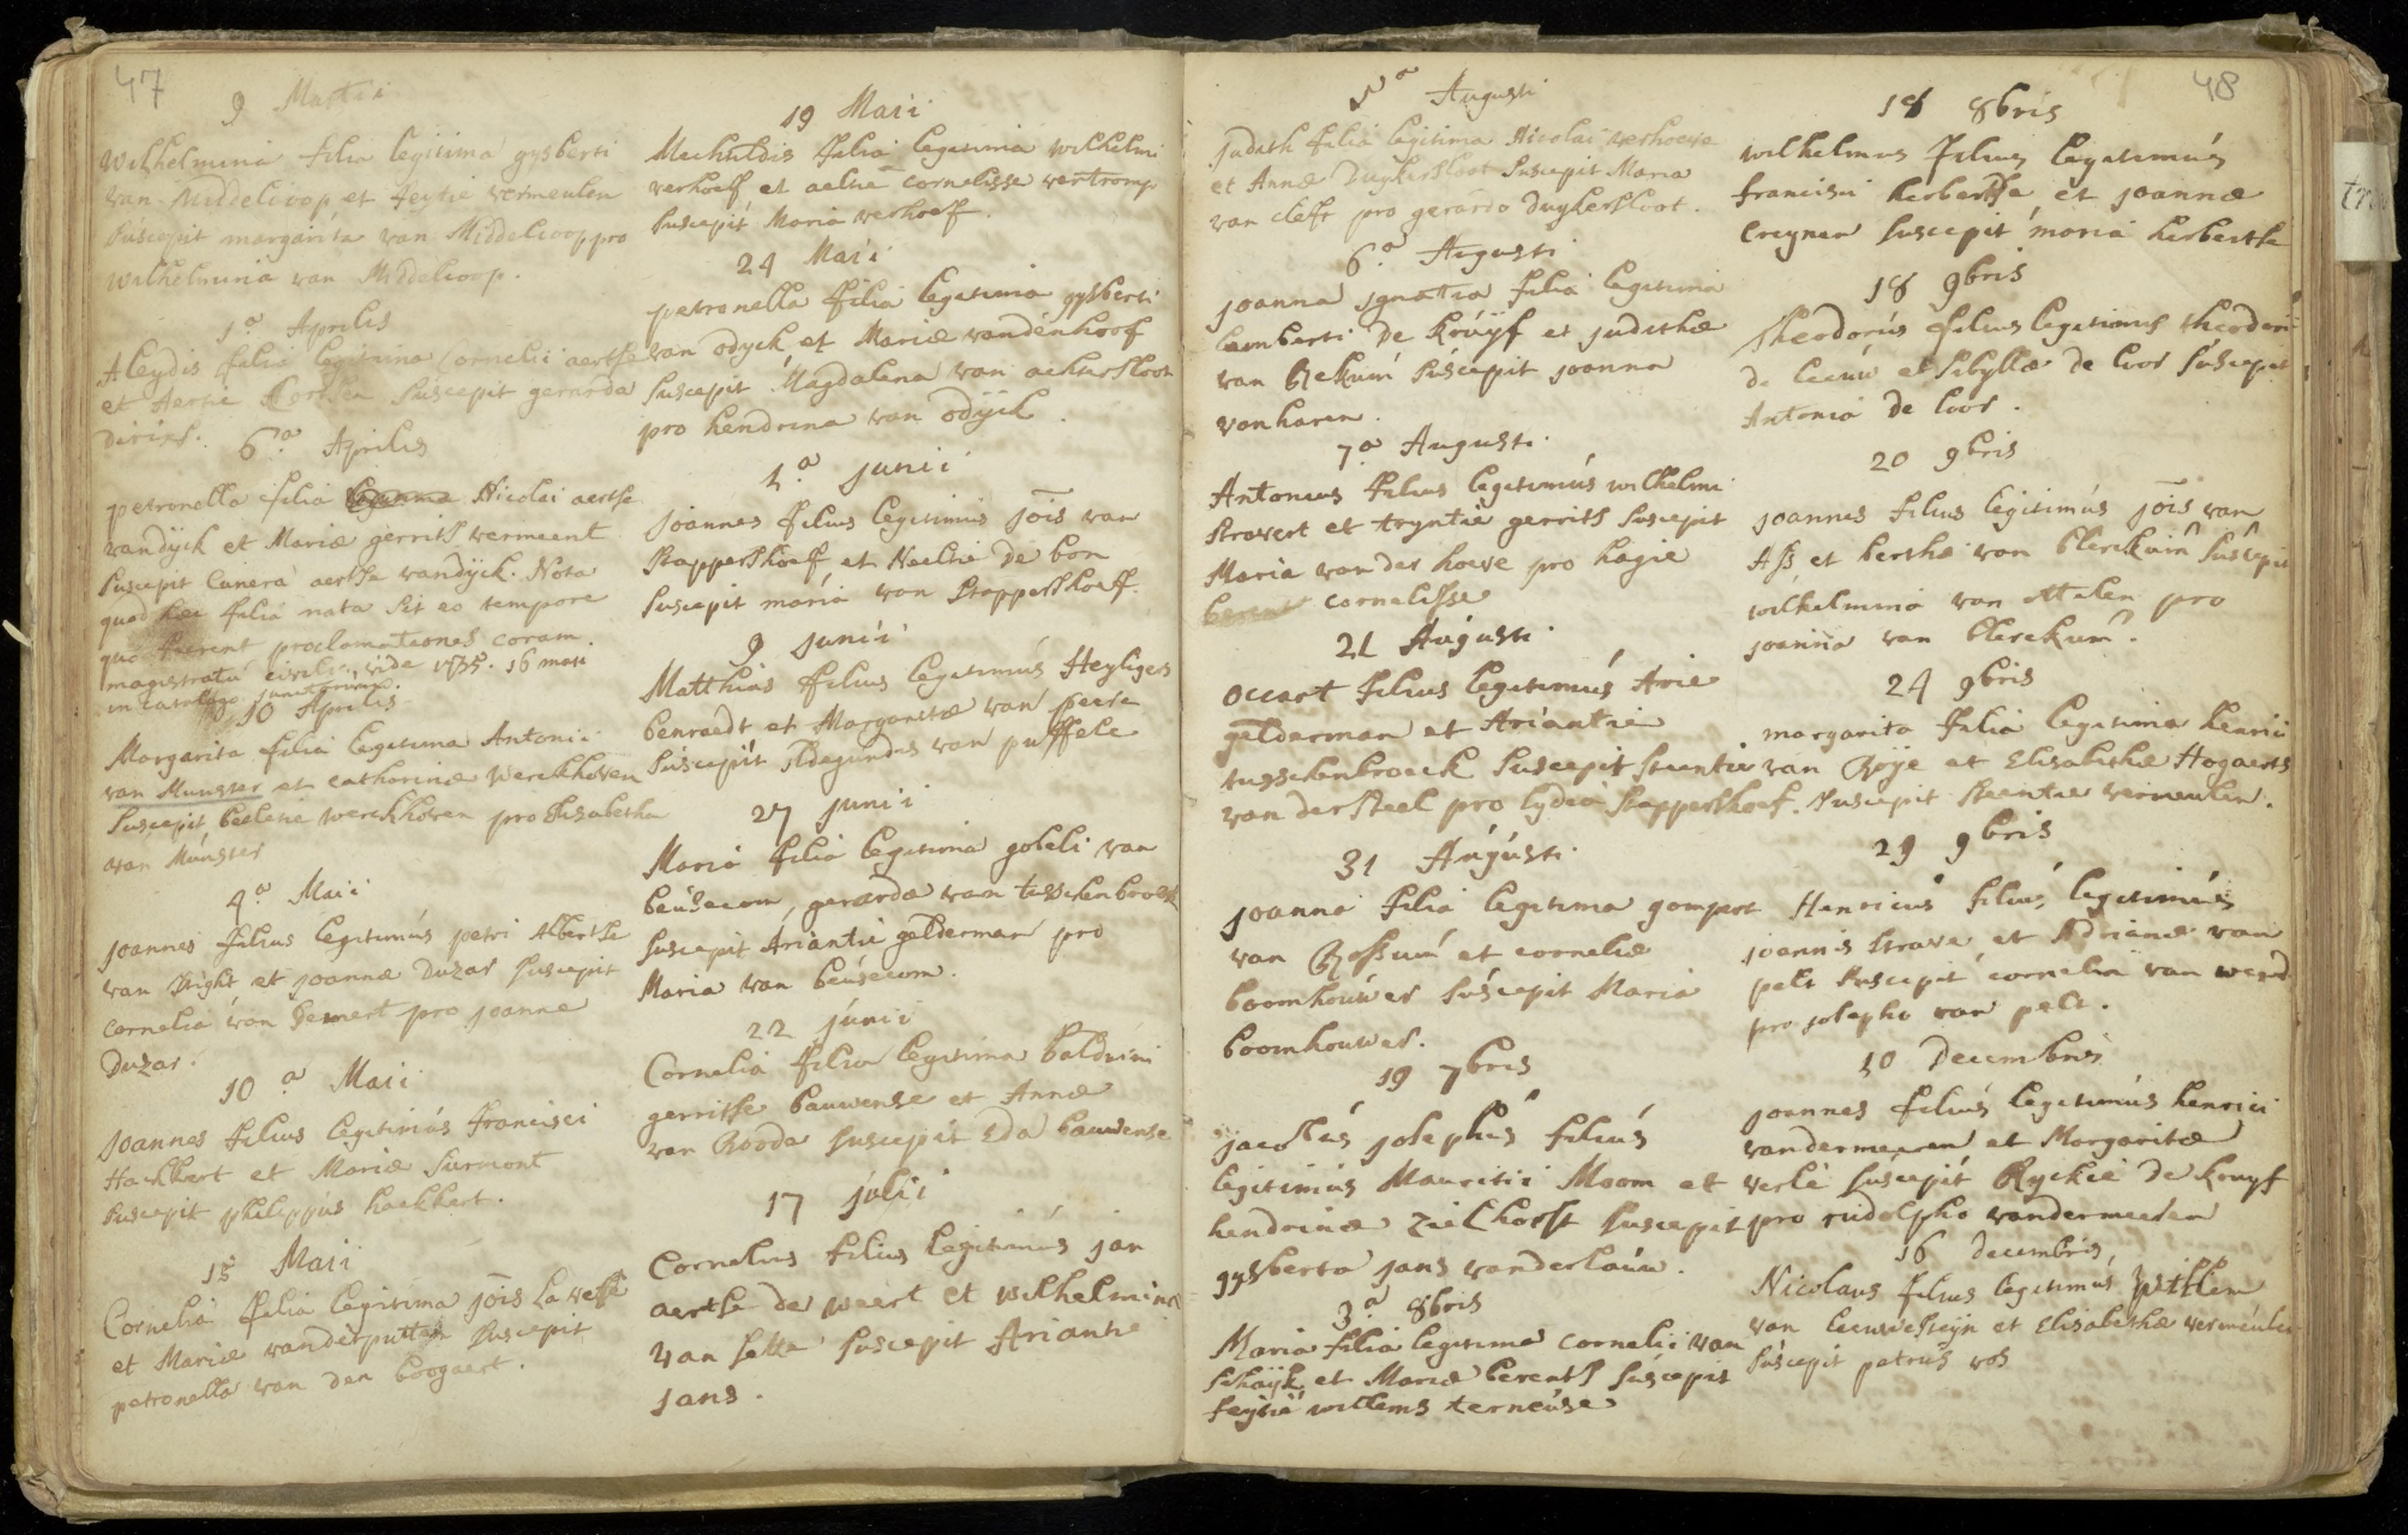 47
9 Martii
Wilhelmina filia legitima gysberti
van Middelcoop et Feytie vermeulen
suscepit margarita van Middelcoop pro
Wilhelmina van Middelcoop.
1ª Aprilis
Aleydis filia legitima Cornelii aertse
et Aertie suscepit gerarda
dirixs.
6ª Aprilis
petronella filia Nicolai aertse
vandyck et Mariæ gerrits vermeent
suscepit Cunera aertse vandyck. Nota
quod hæc filia nata sit eo tempore
quo fuerent proclamationes coram
magistratu civili, vide 1735. 16 maii
in catalogo junctorum.
10 Aprilis
Margarita filia legitima Antonii
van Munster et catharinæ Werckhoven
suscepit beeletie werckhoven pro Elisabetha
van Munster
4ª Maii
Joannes filius legitimus petri Albertse
van Dright et joannæ Duzar suscepit
cornelia van Hemert pro joanne
Duzar.
10ª Maii
Joannes filius legitimus francisci
Hackkert et Mariæ surmont
suscepit philippus hackkert.
15 Maii
Cornelia filia legitima jōis
et Mariæ vanderputten suscepit
petronella van den boogaert.
19 Maii
Mechtildis filia legitima wilhelmi
verhoef et aeltie cornelisse vertromp
suscepit Maria verhoef.
24 Maii
petronella filia legitima gysberti
van odyck et Mariæ vandenhoof
suscepit Magdalena van achtersloot
pro hendrina van odyck.
1ª junii
Joannes filius legitimus jōis van
Stappershoef et Neeltie de bon
suscepit maria van Stappershoeff.
9 junii
Matthias filius legitimus Heyliger
benraedt et Margaritæ van peere
suscepit Aldegundis van puffele
27 junii
Maria filia legitima gobeli van
beusecom, gerarda van tusschenbroeck
suscepit Ariantie gelderman pro
Maria van beusecom.
22 junii
Cornelia filia legitima balduini
gerritse bauwense et Annæ
van Rooda suscepit Eda bauwense
17 julii
Cornelius filius legitimus jan
aertse de weert et wilhelmina
van sette suscepit Ariantie
jans.
48
5ª Augusti
judith filia legitima Nicolai verhoeve
et Annæ Duykersloot suscepit Maria
van cleff pro gerardo duykersloot.
6ª Augusti
joanna ignatia filia legitima
lamberti de kruyf et judithæ
van Rekum suscepit joanna
van haren.
7ª Augusti
Antonius filius legitimus wilhelmi
stravert et tryntie gerrits suscepit
Maria van der hoeve pro hagie
cornelisse
21 Augusti
occart filius legitimus Arie
gelderman et Ariantie
tusschenbroeck suscepit steentie
van der steel pro lydia stappershoef.
31 Augusti
joanna filia legitima gompert
van Rossum et corneliæ
boomhouwer suscepit Maria
boomhouwer.
19 7bris
jacobus josephus filius
legitimus Mauritii Moom et
hendrinæ zielhorst suscepit
gysberta jans vanderlauw.
3ª 8bris
Maria filia legitima cornelii van
schayk et Mariæ berents suscepit
feytie willems terneuse
18 8bris
wilhelmus filius legitimus
francisci herbertse et joannæ
Creynen suscepit maria herbertse
18 9bris
Theodorus filius legitimus theodori
de leeuw et sibyllæ de loor suscepit
Antonia de loor.
20 9bris
joannes filius legitimus jōis van
Ass et berthæ van blerckum suscepit
wilhelmina van Attelen pro
joanna van blerckum.
24 9bris
margarita filia legitima henrici
van Royé et Elisabethæ Hogaerts
suscepit steentie vermeulen.
29 9bris
Henricus filius legitimus
joannis strave et Adrianæ van
pelt suscepit cornelia van weerd
pro josepho van pelt.
10 Decembris
joannes filius legitimus henrici
vandermeeren et Margaritæ
verle suscepit Ryckie de kruyf
pro rudolpho vandermeeren
16 decembris,
Nicolaus filius legitimus
van leeuwesteyn et Elisabethæ vermeulen
suscepit petrus vos